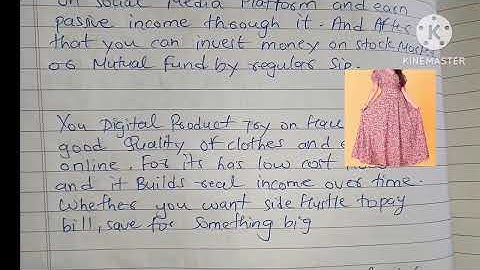 on social Media Platform and earn
passive income through it. And After
that you can invest money on stock
or Mutual Fund by regular Sip.
KINEMASTER
You Digital Product Try on
good Quality of clothes and
online. For its has low cost
and it Builds real income over time.
Whether you want side Hustle to pay
bill, save for something big